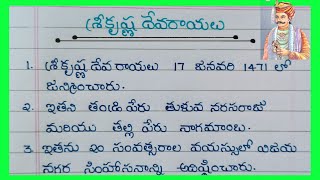 శ్రీకృష్ణ దేవరాయలు
1. శ్రీకృష్ణ దేవ రాయలు 17 జనవరి 1471 లో
జన్మించారు.
2. ఇతని తండ్రి పేరు తుళువ నరసరాజు
మరియు తల్లి పేరు నాగమాంబ.
3. ఇతను 20 సంవత్సరాల వయస్సులో విజయ
నగర సింహాసనాన్ని అధిష్టించారు.